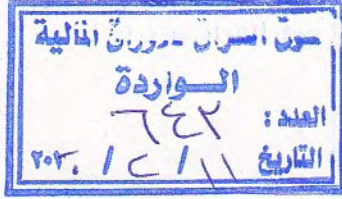 سوق العراق للاوراق المالية
الـواردة
العدد : ٦٤٣
التاريخ ١١ / ٢ / ٢٠٢٠